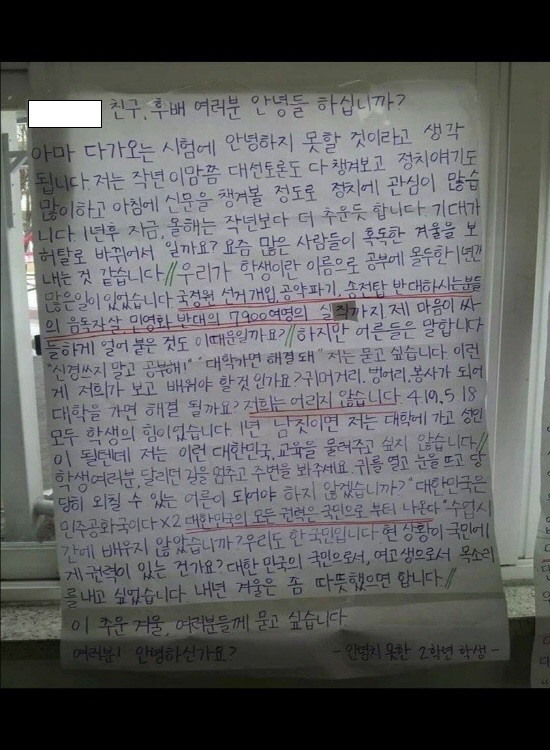 친구, 후배 여러분 안녕들 하십니까?
아마 다가오는 시험에 안녕하지 못할 것이라고 생각
됩니다. 저는 작년 이맘쯤 대선토론도 다 챙겨보고 정치얘기도
많이하고 아침에 신문을 챙겨볼 정도로 정치에 관심이 많습
니다. 1년후 지금, 올해는 작년보다 더 추운듯 합니다. 기대가
허탈로 바뀌어서 일까요? 요즘 많은 사람들이 혹독한 겨울을 보
내는 것 같습니다.// 우리가 학생이란 이름으로 공부에 몰두한 1년간
많은일이 있었습니다. 국정원 선거개입, 공약파기, 송전탑 반대하시는분들
의 음독자살, 민영화 반대의 7900여명의 실직까지 제 마음이 싸
늘하게 얼어 붙은 것도 이때문일까요?// 하지만 어른들은 말합니다
"신경쓰지 말고 공부해!" "대학가면 해결돼" 저는 묻고 싶습니다. 이런
게 저희가 보고 배워야 할 것 인가요? 귀머거리, 벙어리, 봉사가 되어
대학을 가면 해결 될까요? 저희는 어리지 않습니다. 4.19, 5.18
모두 학생의 힘이었습니다. 1년 남짓이면 저는 대학에 가고 성인
이 될텐데 저는 이런 대한민국, 교육을 물려주고 싶지 않습니다.//
학생여러분, 달리던 길을 멈추고 주변을 봐주세요. 귀를 열고 눈을 뜨고 당
당히 외칠 수 있는 어른이 되어야 하지 않겠습니까? "대한민국은
민주공화국이다 X2 대한민국의 모든 권력은 국민으로 부터 나온다" 수업시
간에 배우지 않았습니까? 우리도 한 국민입니다. 현 상황이 국민에
게 권력이 있는 건가요? 대한 민국의 국민으로서, 여고생으로서 목소리
를 내고 싶었습니다. 내년 겨울은 좀 따뜻했으면 합니다.//
이 추운 겨울, 여러분들께 묻고 싶습니다
여러분! 안녕하신가요? - 안녕치 못한 2학년 학생 -